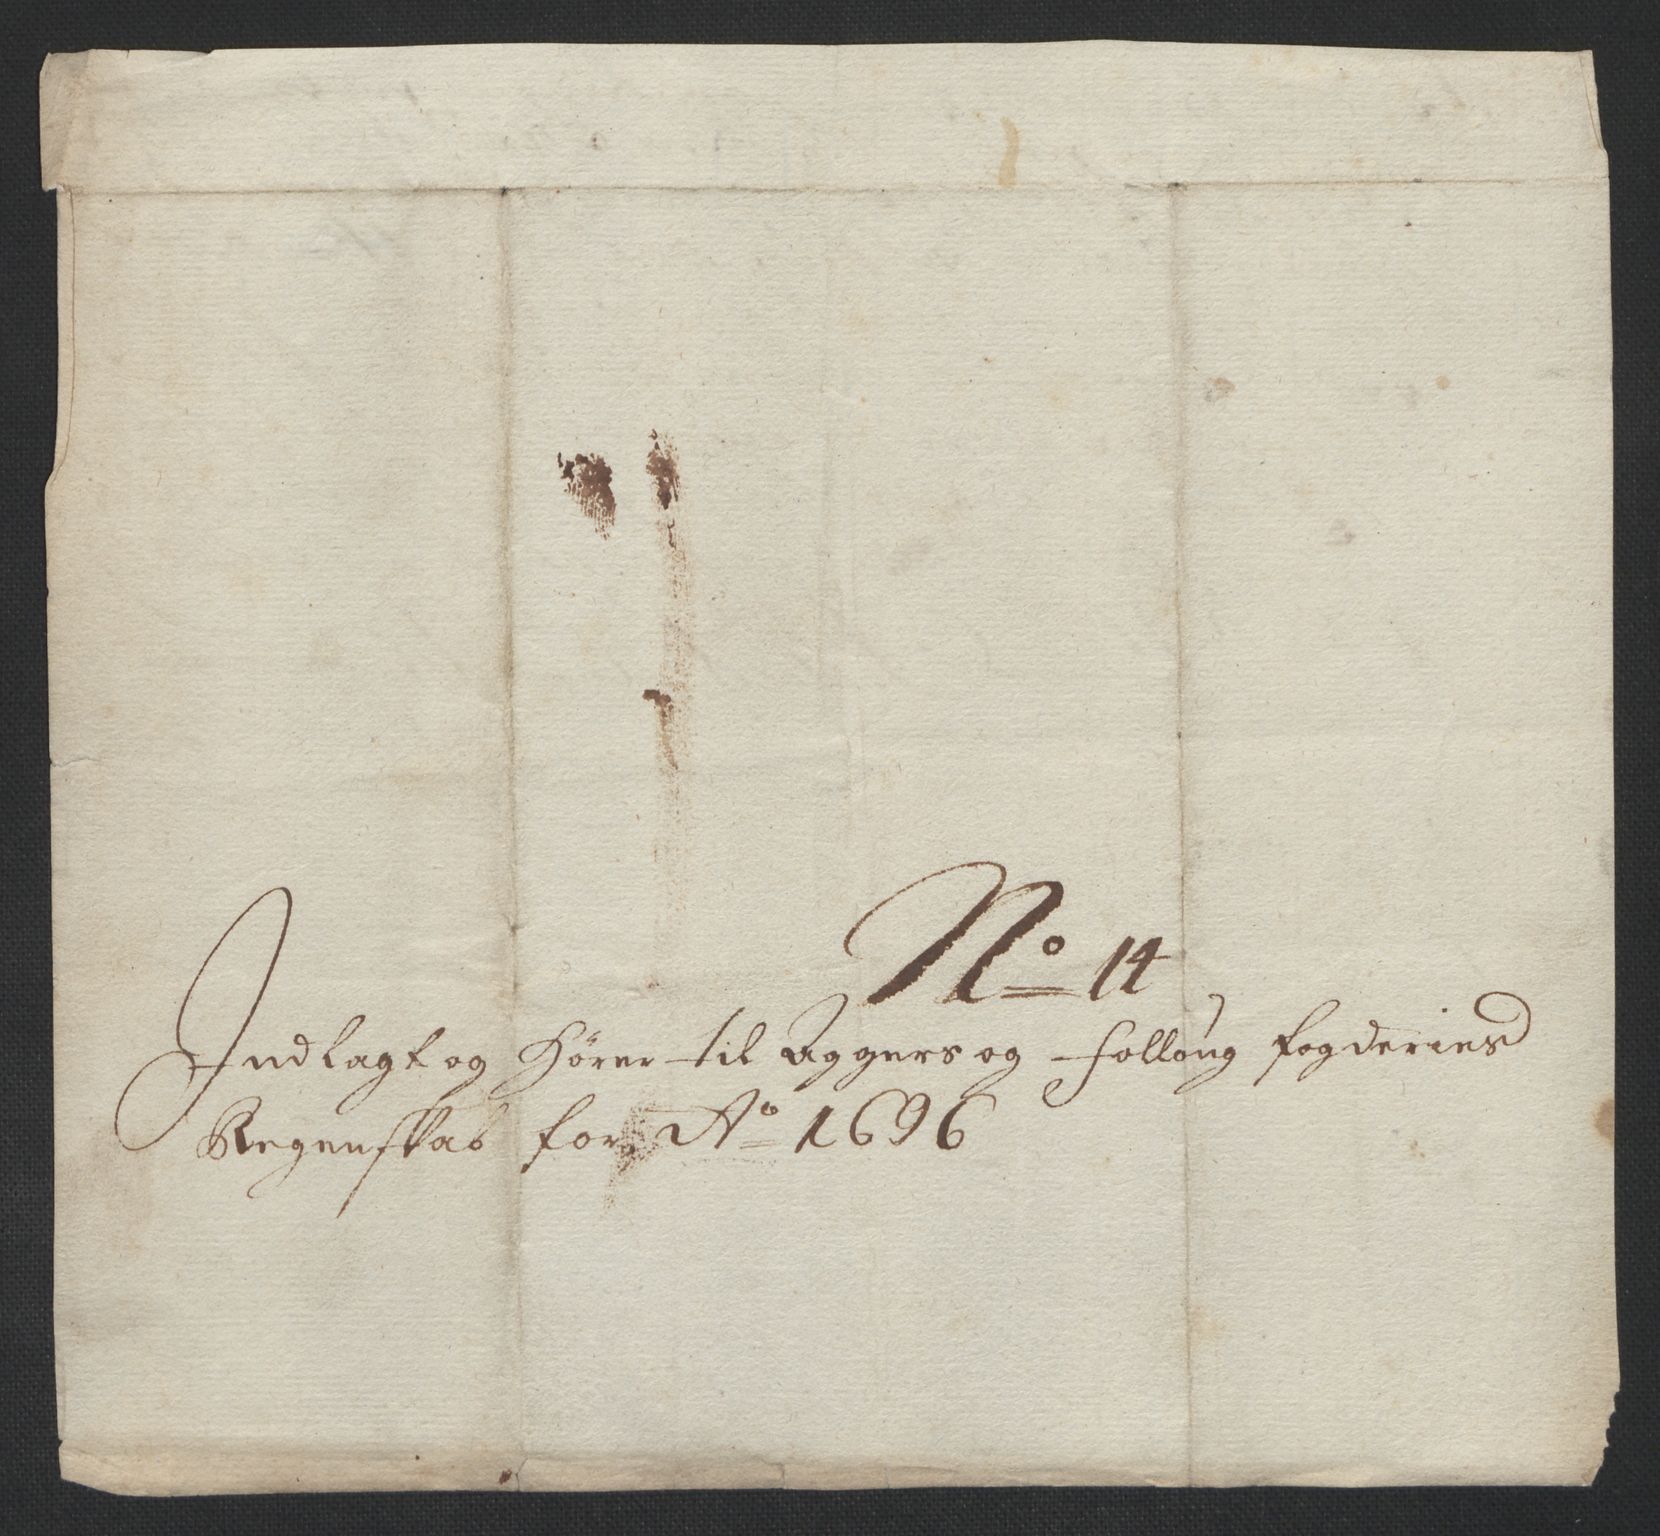 No 14
Indlagt og hører til Aggers og Folloug fogderies
Regenskab for Ao 1696